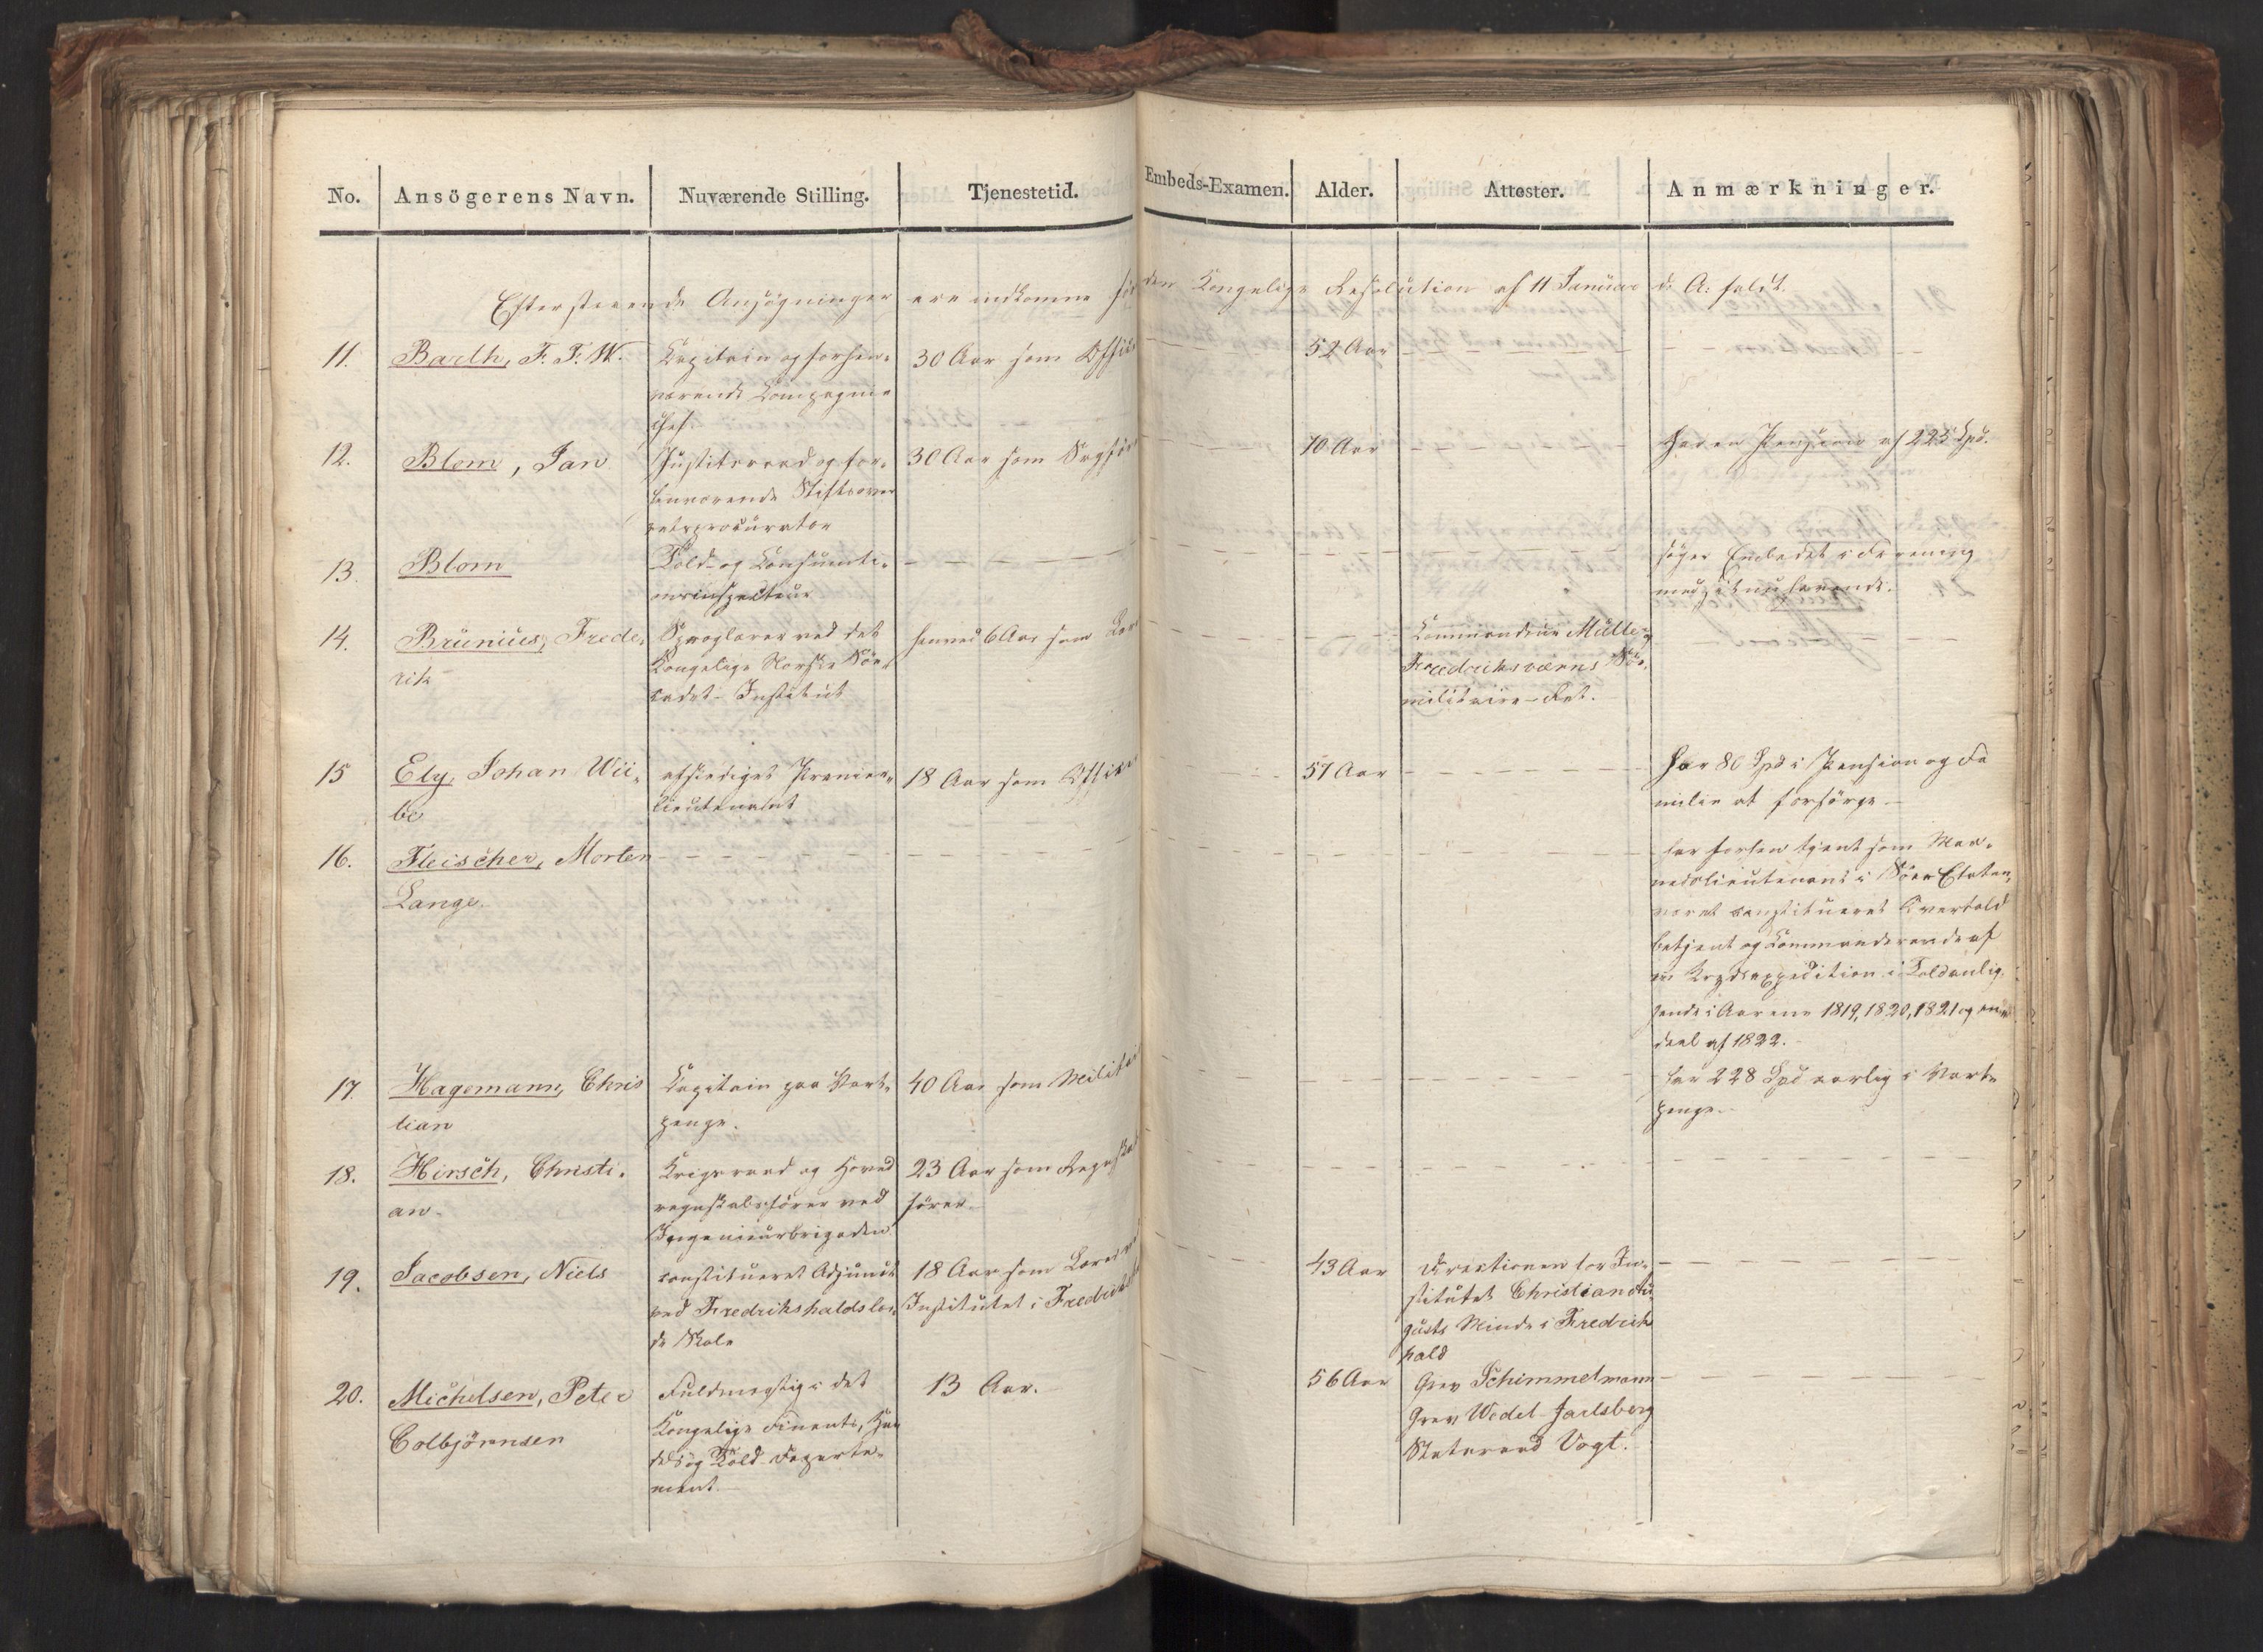 No. Ansögerens Navn. Nuværende Stilling. Tjenestetid. Embeds-Examen. Alder. Attester. Anmærkninger.
Efterstaaende Ansøgninger ere indkomne för den Kongelige Resolution af 11 Januar d. A. faldt.
11. Barth, F. F. W.
Capitain og forhen-
værende Compagnie
chef.
30 Aar som Officer
52 Aar
12. Blom, Jan
Justitsraad og for-
henværende Stiftsover
retsprocurator
30 Aar som Sagförer
70 Aar
Har en Pension af 225 Spd.
13. Blom
Told- og Consumti-
onsinspecteur
söger Embedet i Forening
med sit nuhavende.
14. Brunius, Frede-
rik
Sproglærer ved det
Kongelige Norske Söe-
cadet-Institut
henved 6 Aar som
Commandeur Müller
Fredriksværns Söe-
militaire-Ret.
15 Ely, Johan Wii-
be
afskediget Premier-
lieutenant
18 Aar som Officer
57 Aar
Har 80 Spd i Pension og Fa
milie at forsörge
16. Fleischer, Morten
Lange
har forhen tjent som Maa-
nedslieutenant i Söe Etaten,
været constitueret Overtold
betjent og Commanderende af
en Krydsexpedition i Toldanlig-
gende i Aarene 1819, 1820, 1821 og en
deel af 1822.
17. Hagemann, Chris
tian
Capitain paa Vart-
penge.
40 Aar som Militair
har 228 Spd aarlig i Vart-
penge.
18. Hirsch, Christi-
an
Krigsraad og Hoved
regnskabsförer ved
Ingenieurbrigaden
23 Aar som Regnskabs
förer
19. Jacobsen, Niels
constitueret Adjunct
ved Fredrikshalds lær-
de Skole
18 Aar som Lærer ved
Institutet i Fredrikshald
43 Aar
Directionen for In-
stitutet Christian Au-
gusts Minde i Fredriks
hald
20. Michelsen, Peter
Colbjörnsen
Fuldmægtig i det
Kongelige Finants, Han
dels og Told Departe-
ment.
13 Aar.
56 Aar
Grev Schimmelmann
Grev Wedel-Jarlsberg
Statsraad Vogt.